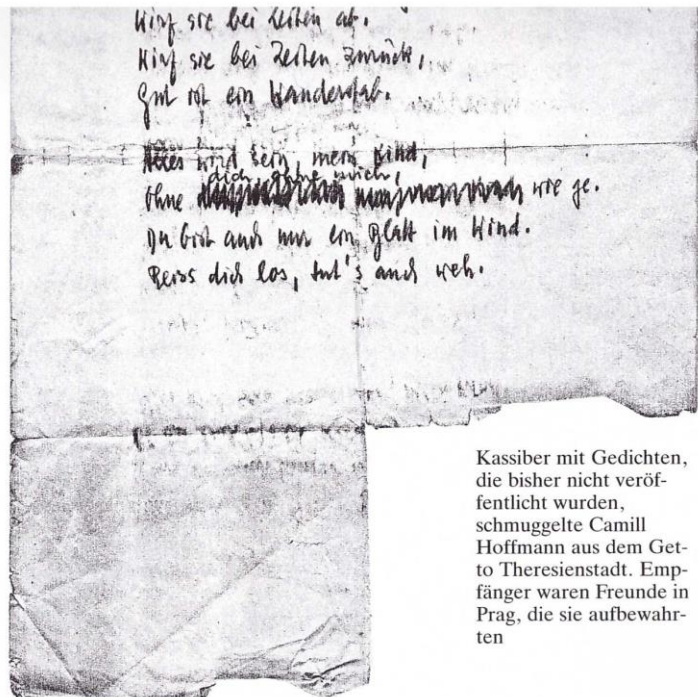 Wirf sie bei Zeiten ab.
Wirf sie bei Zeiten zurück,
Gut ist ein Wanderstab.
Alles wird sein, mein Kind,
dich, ohne mich,
Ohne wie je.
Du bist auch nur ein Blatt im Wind.
Reiss dich los, tut's auch weh.
Kassiber mit Gedichten,
die bisher nicht veröf-
fentlicht wurden,
schmuggelte Camill
Hoffmann aus dem Get-
to Theresienstadt. Emp-
fänger waren Freunde in
Prag, die sie aufbewahr-
ten